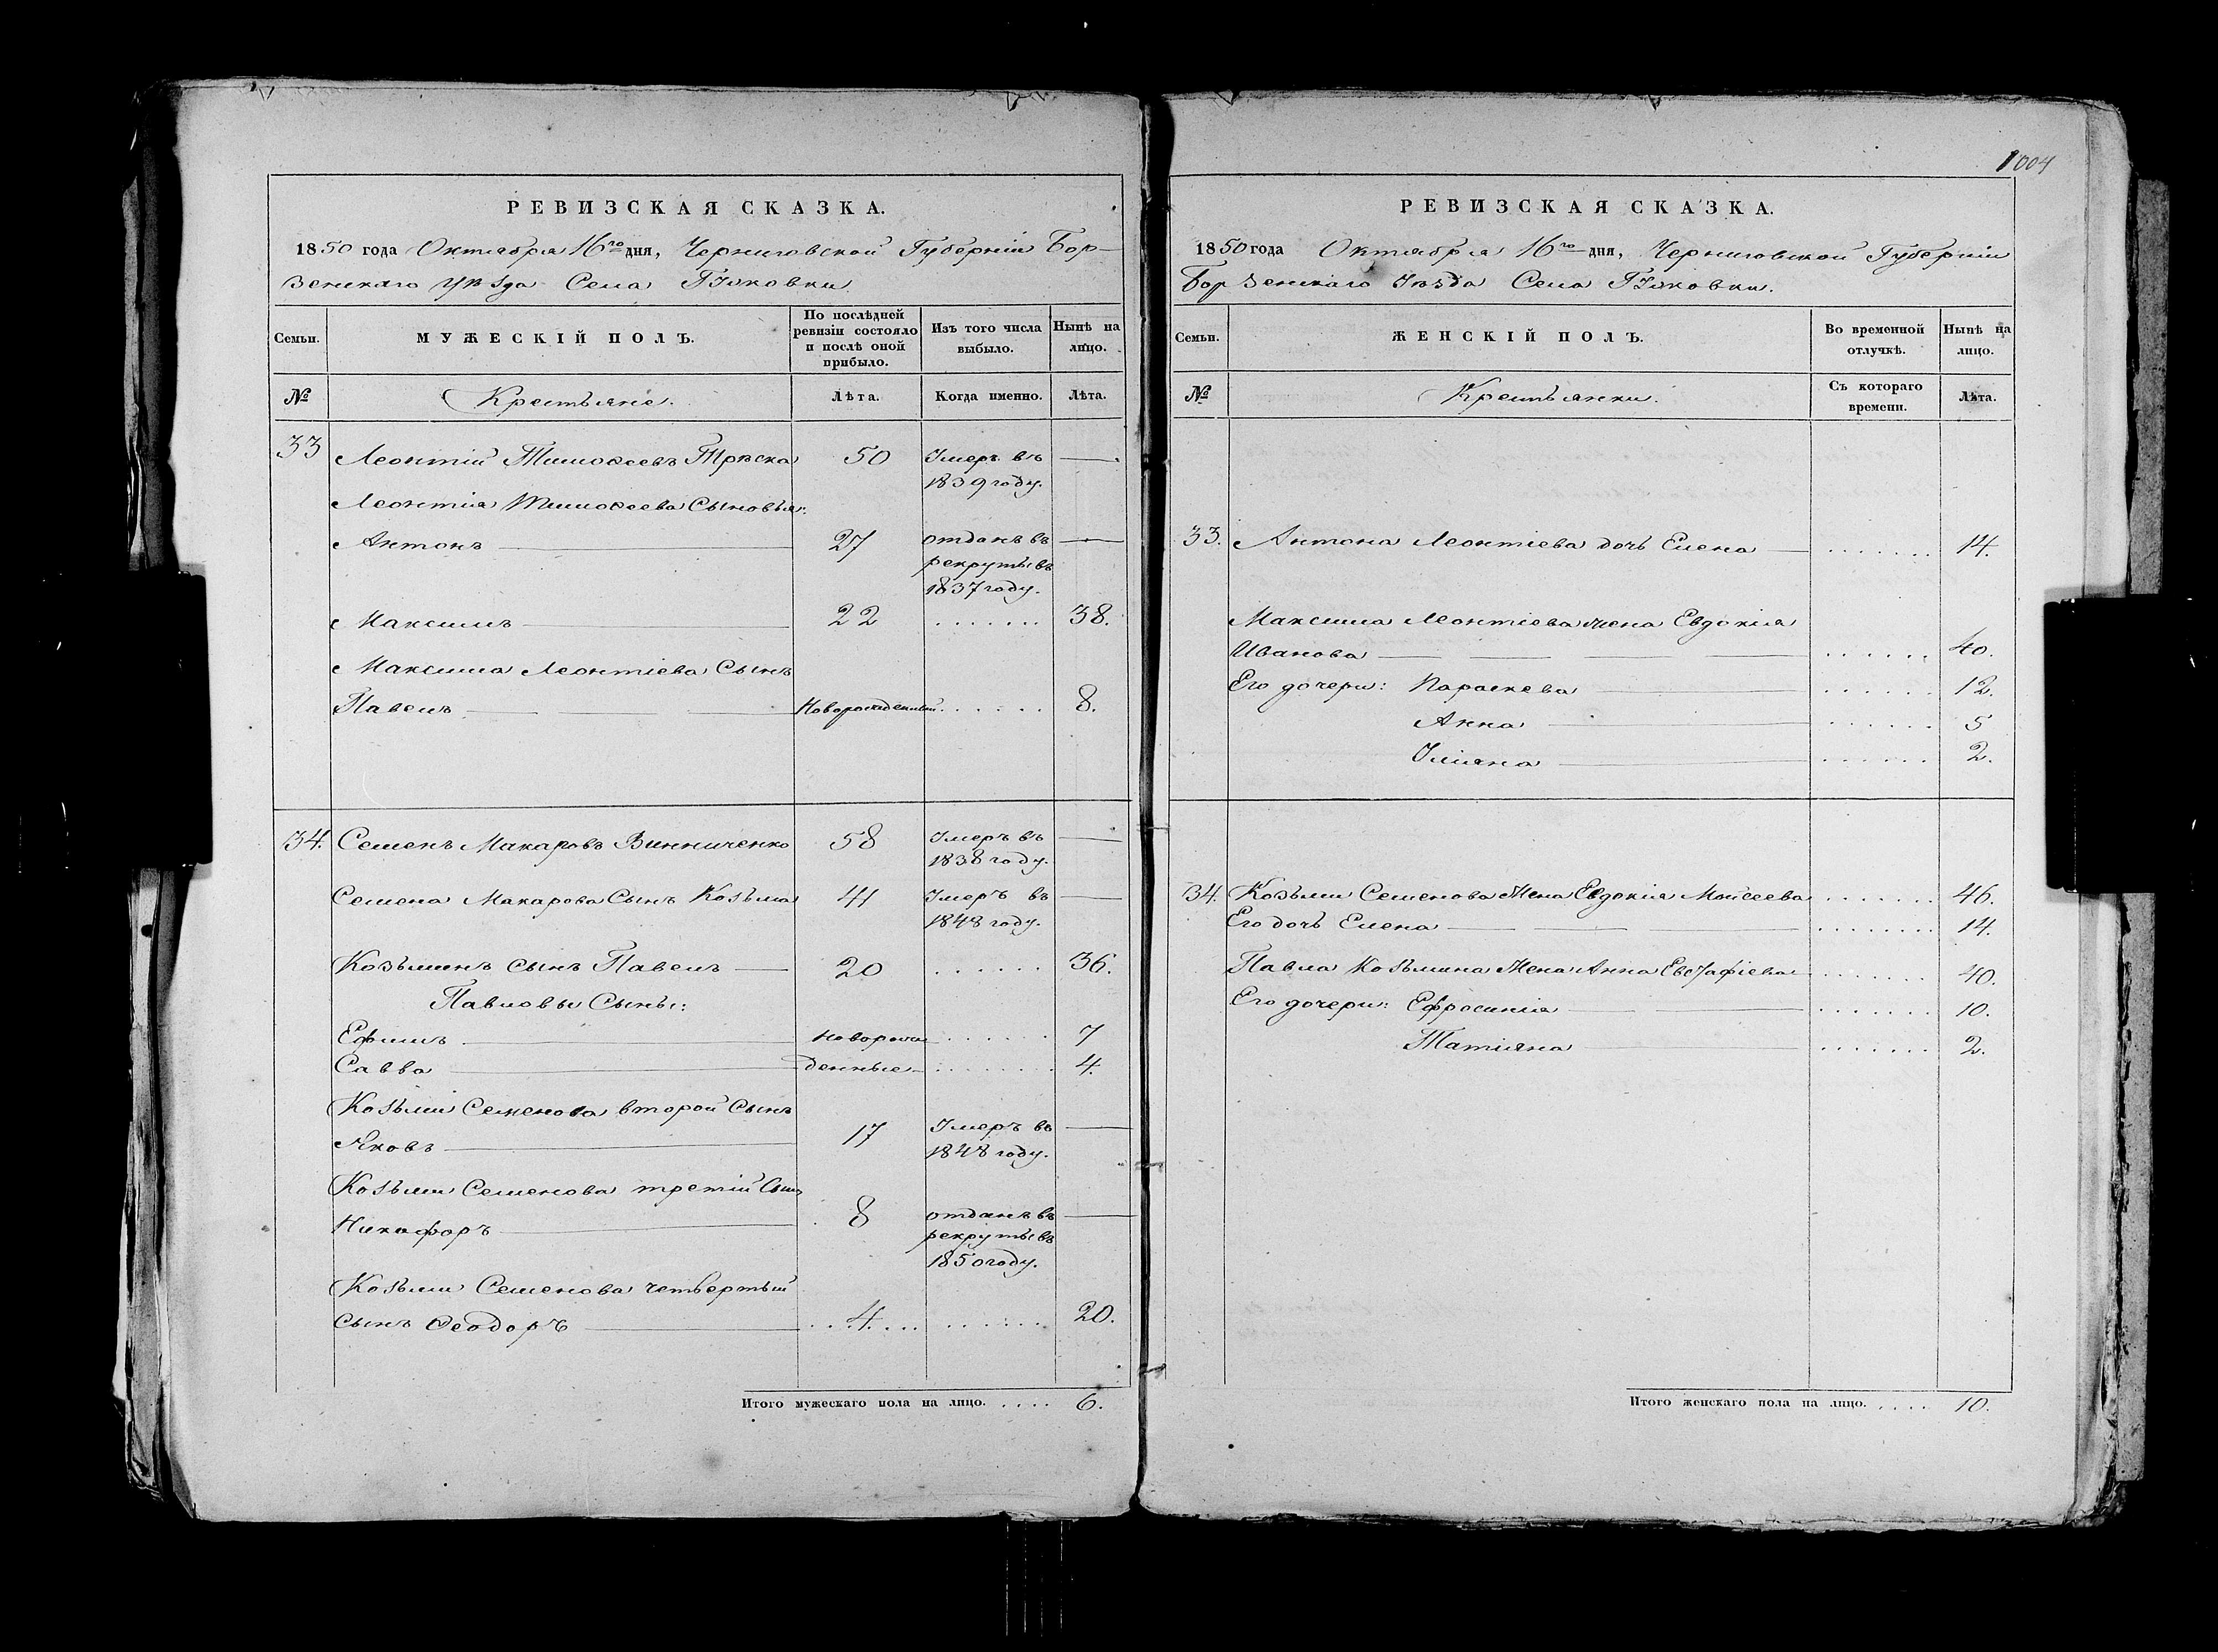 1004
РЕВИЗСКАЯ СКАЗКА.
1850 года Октября 16го дня, Черниговской Губерніи Бор-
зенскаго Уѣзда Села
Семьи.
МУЖЕСКІЙ ПОЛЪ.
По послѣдней ревизіи состояло и послѣ оной прибыло.
Изъ того числа выбыло.
Нынѣ на лицо.
№
Крестьяне.
Лѣта.
Когда именно.
Лѣта.
33 Леонтій Тимоѳеевъ 50 Умеръ въ —
1839 году.
Леонтія Тимоѳеева Сыновья:
Антонъ — 27 отданъ въ —
рекруты въ
1837 году.
Максимъ — 22 . . . . . . . 38.
Максима Леонтіева Сынъ
Павелъ — Новорожденный . . . . . . 8.
34. Семенъ Макаровъ Винниченко 58 Умеръ въ —
1838 году.
Семена Макарова Сынъ Козьма 41 Умеръ въ —
1848 году.
Козьминъ сынъ Павелъ — 20 . . . . . . 36.
Павловы Сыны:
Ефимъ — новорож . . . . . . 7
Савва — денные . . . . . . . 4.
Козьмы Семенова второй Сынъ
Яковъ — 17 Умеръ въ —
1848 году.
Козьмы Семенова третій Сынъ
Никифоръ — 8 отданъ въ —
рекруты въ
1850 году.
Козьмы Семенова четвертый
сынъ Ѳеодоръ — . . . 4 . . . . . . . . . 20.
Итого мужескаго пола на лицо. . . . . 6.
РЕВИЗСКАЯ СКАЗКА.
1850 года Октября 16го дня, Черниговской Губерніи
Борзенскаго Уѣзда Села
Семьи.
ЖЕНСКІЙ ПОЛЪ.
Во временной отлучкѣ.
Нынѣ на лицо.
№
Крестьянки.
Съ котораго времени.
Лѣта.
33. Антона Леонтіева дочь Елена — . . . . . . . 14.
Максима Леонтіева жена Евдокія
Иванова — . . . . . . 40.
Его дочери: Параскева — . . . . . . 12.
Анна — . . . . . . 5
Уліяна — . . . . . . 2.
34. Козьмы Семенова Жена Евдокія Моисеева . . . . . . . 46.
Его дочь Елена — . . . . . . . . 14.
Павла Козьмина Жена Анна . . . . . . . 40.
Его дочери: Ефросинія — . . . . . . . 10.
Татіяна — . . . . . . . 2.
Итого женскаго пола на лицо. . . . . 10.